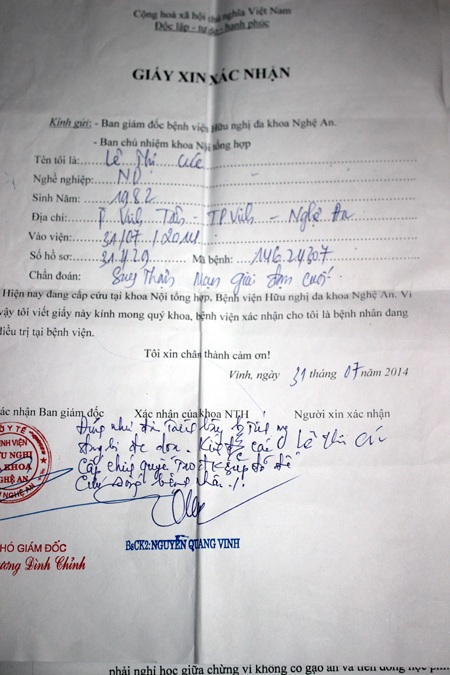 Cộng hoà xã hội chủ nghĩa Việt Nam
Độc lập - tự do - hạnh phúc
GIẤY XIN XÁC NHẬN
Kính gửi: - Ban giám đốc bệnh viện Hữu nghị đa khoa Nghệ An.
- Ban chủ nhiệm khoa Nội tổng hợp
Tên tôi là: Lê Thị Cúc
Nghề nghiệp: ND
Sinh Năm: 1982
Địa chỉ: P. Vinh Tân - TP Vinh - Nghệ An
Vào viện: 31/07/2014
Số hồ sơ: 31.429 Mã bệnh: 146.24307
Chẩn đoán: Suy Thận Mạn giai đoạn cuối.
Hiện nay đang cấp cứu tại khoa Nội tổng hợp, Bệnh viện Hữu nghị đa khoa Nghệ An. Vì
vậy tôi viết giấy này kính mong quý khoa, bệnh viện xác nhận cho tôi là bệnh nhân đang
điều trị tại bệnh viện.
Tôi xin chân thành cảm ơn!
Vinh, ngày 31 tháng 07 năm 2014
xác nhận Ban giám đốc Xác nhận của khoa NTH Người xin xác nhận
Lê Thị Cúc
bệnh nhân
Y TẾ
BỆNH VIỆN
HỮU NGHỊ
KHOA
NGHỆ AN
BsCK2: NGUYỄN QUANG VINH
PHÓ GIÁM ĐỐC
Đình Chỉnh
phải nghỉ học giữa chừng vì không có gạo ăn và tiền đóng học